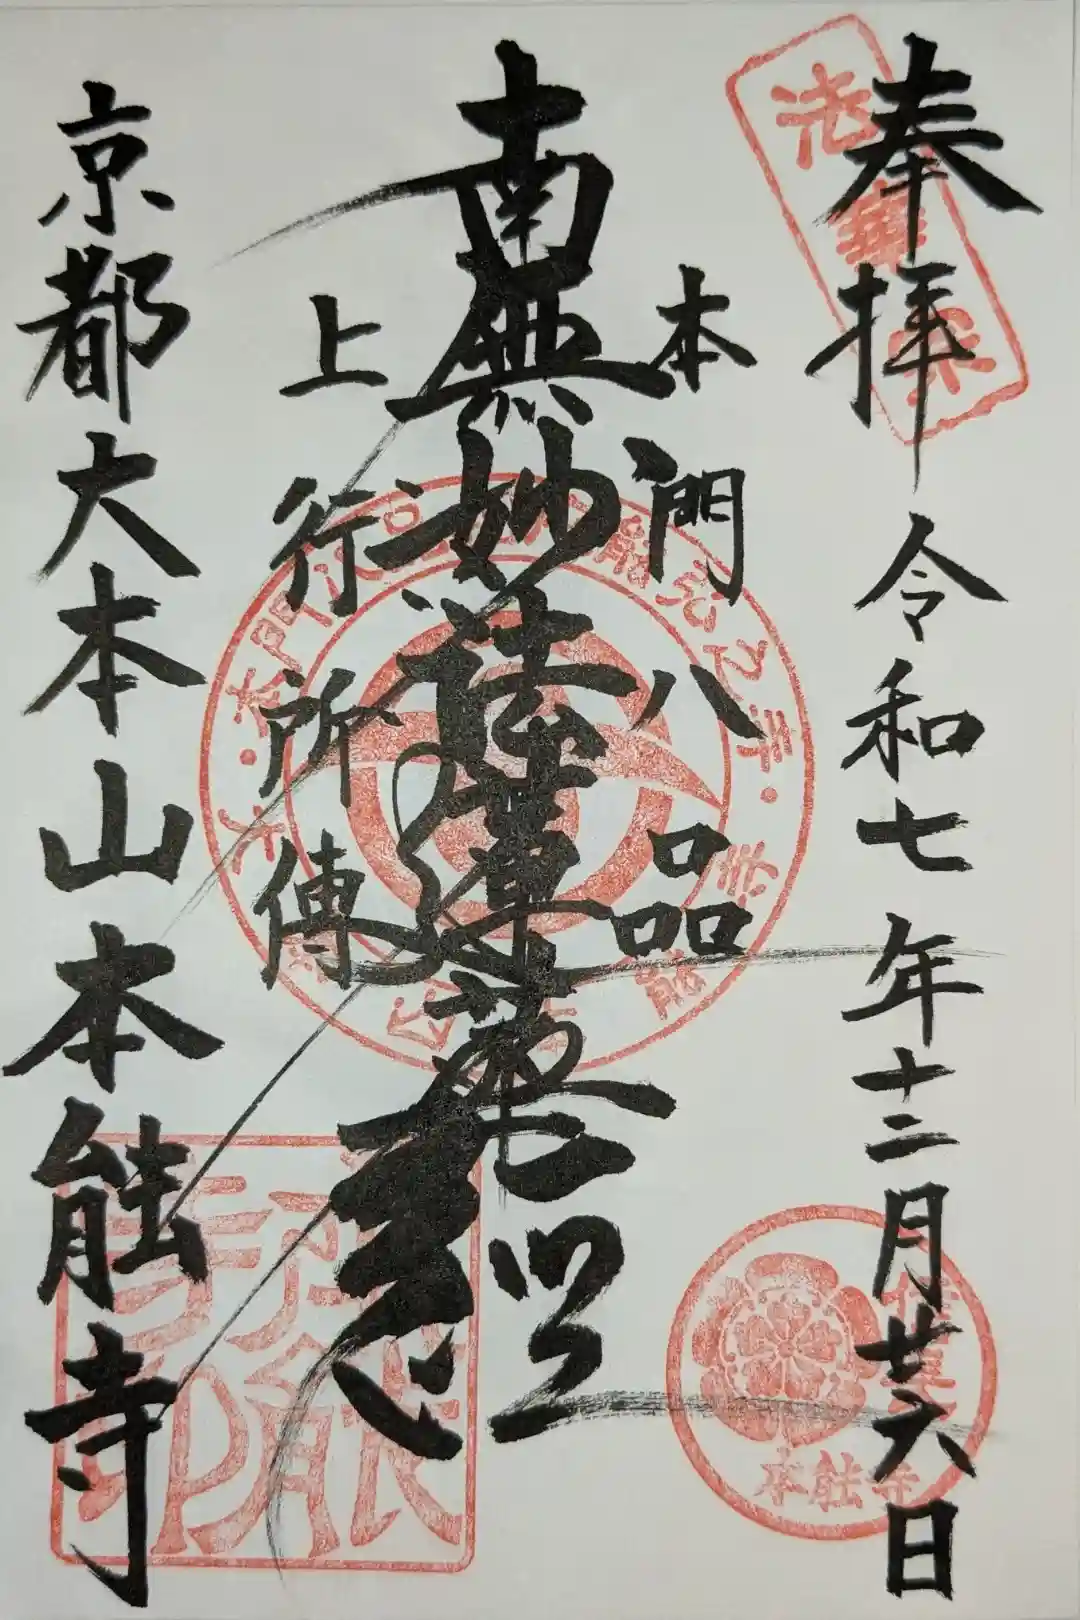 奉拝
令和七年十二月廿六日
本門八品
南無妙法蓮華経
上行所傳
京都大本山本能寺
法華宗
本能寺